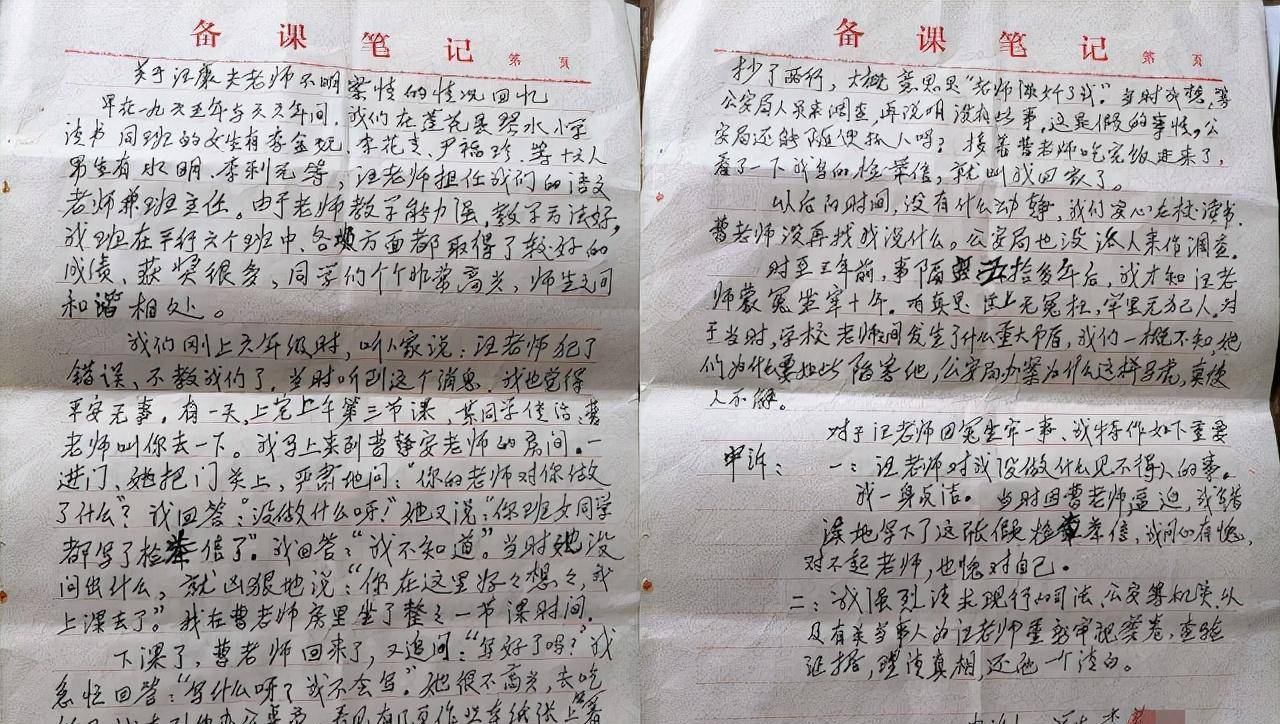 备课笔记
第 页
关于汪康夫老师不明案情的情况回忆
早在一九六五年与六六年间，我们在莲花县琴水小学
读书 同班的女生有李金玩、李花支、尹福珍、等十六人
男生有 水明、李利元等，汪老师担任我们的语文
老师兼班主任。由于老师教学能力强，教学方法好，
我班在平行六个班中，各项方面都取得了较好的
成绩、获奖很多，同学们个个非常高兴，师生之间
和谐相处。
我们刚上六年级时，听人家说：汪老师犯了
错误、不教我们了，当时听到这个消息，我也觉得
平安无事。有一天，上完上午第三节课，某同学传话：曹
老师叫你去一下。我马上来到曹静安老师的房间。一
进门、她把门关上，严肃地问：“你的老师对你做
了什么”？我回答：“没做什么呀！”她又说：“你班女同学
都写了检举信了”。我回答：“我不知道”。当时她没
问出什么，就凶狠地说：“你在这里好々想々，我
上课去了”。我在曹老师房里坐了整々一节课时间，
下课了，曹老师回来了，又追问：“写好了吗？”我
急忙回答：“写什么呀？我不会写。”她很不高兴，去吃
备课笔记
第 页
抄了两行，大概意思是“老师做奸了我”。当时我想，等
公安局人员来调查，再说明没有些事，这是假的事情，公
安局还能随便抓人吗？接着曹老师吃完饭进来了，
看了一下我写的检举信，就叫我回家了。
以后的时间，没有什么动静，我们安心在校读书，
曹老师没再找我说什么。公安局也没派人来作调查。
时至三年前，事隔五拾多年后，我才知汪老
师蒙冤坐牢十年。有真是 世上无冤枉，牢里无犯人。对
于当时，学校老师间发生了什么重大矛盾，我们一概不知，她
们为什么要如此陷害他，公安局办案为什么这样马虎，真使
人不解。
对于汪老师因冤坐牢一事、我特作如下重要
申诉：一：汪老师对我没做什么见不得人的事。
我一身贞洁。当时因曹老师逼迫，我错
误地写下了这张假检举信，我问心有愧，
对不起老师，也愧对自己。
二：我强烈请求现行的司法、公安等机关，以
及有关当事人为汪老师重新审视案卷，查验
证据，理清真相，还他一个清白。